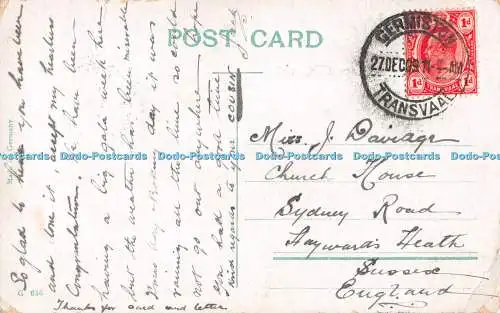 POST CARD
GERMISTON
27 DEC 09 11 - AM
TRANSVAAL
1d 1d
So glad to hear you have been
and done it accept my hearties
Congratulation. We have been
having a big gala week here
but the weather has been miserable
Xmas day Boxing day it was
raining all the time so could
not go out anywhere. hope
you had a good time
Kind regards to your COUSIN
Jack
Thanks for card and letter
Miss J. Davidge
Church House
Sydney Road
Haywards Heath
Sussex
England
Germany
636
Dodo-Postcards Dodo-Postcards Dodo-Postcards Dodo-Postcards Dodo-Postcards Dodo-Postcards